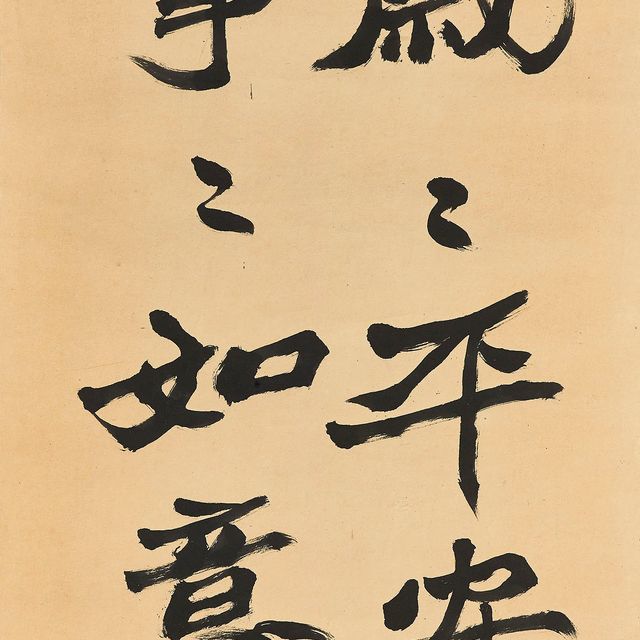 歲〻平安
事〻如意